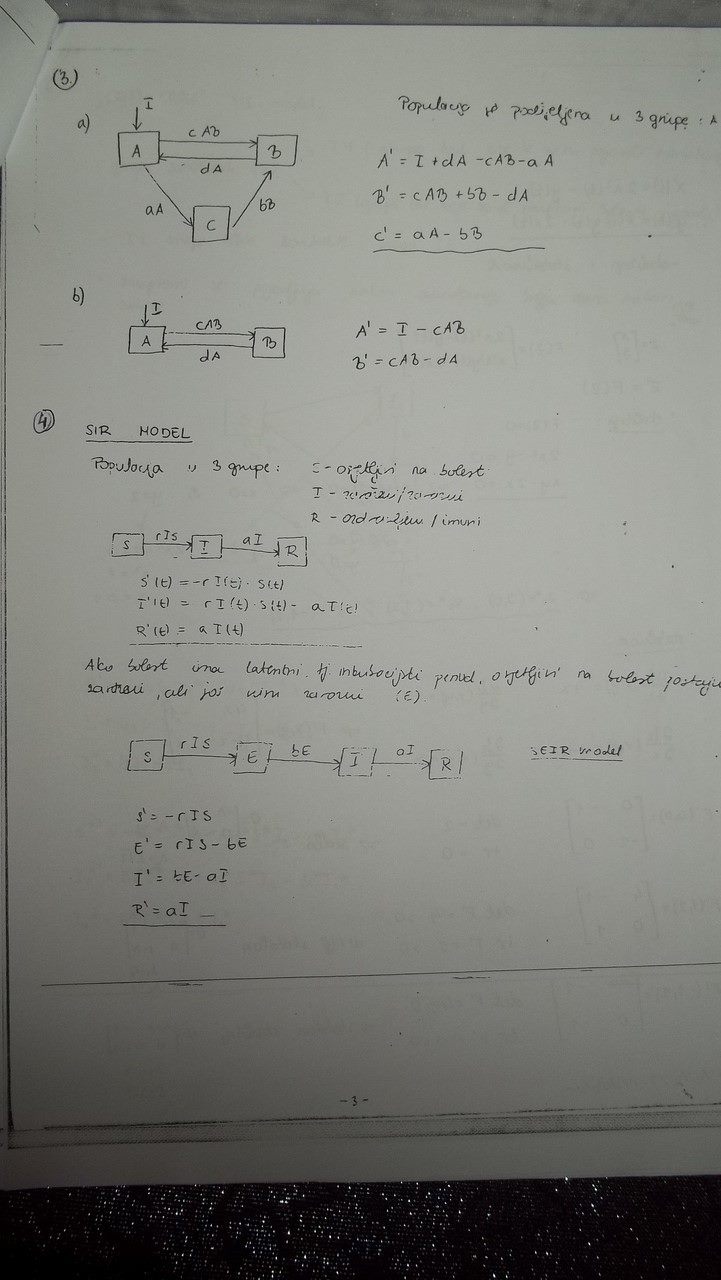 3.
a)
I
A
cAB
B
dA
aA
bB
C
Populacija je podijeljena u 3 grupe : A
A' = I + dA - cAB - aA
B' = cAB + bB - dA
C' = aA - bB
b)
I
A
cAB
B
dA
A' = I - cAB
B' = cAB - dA
4
SIR MODEL
Populacija u 3 grupe : - osjetljivi na bolest
I - zaraženi/zarazni
R - ozdravljeni / imuni
S rIS I aI R
S'(t) = -r I(t) · S(t)
I'(t) = r I(t) · S(t) - a I(t)
R'(t) = a I(t)
Ako bolest ima latentni, tj. inkubacijski period, osjetljivi na bolest postaju
zaraženi, ali još nisu zarazni (E).
S rIS E bE I aI R
SEIR model
S' = -rIS
E' = rIS - bE
I' = bE - aI
R' = aI
-3-